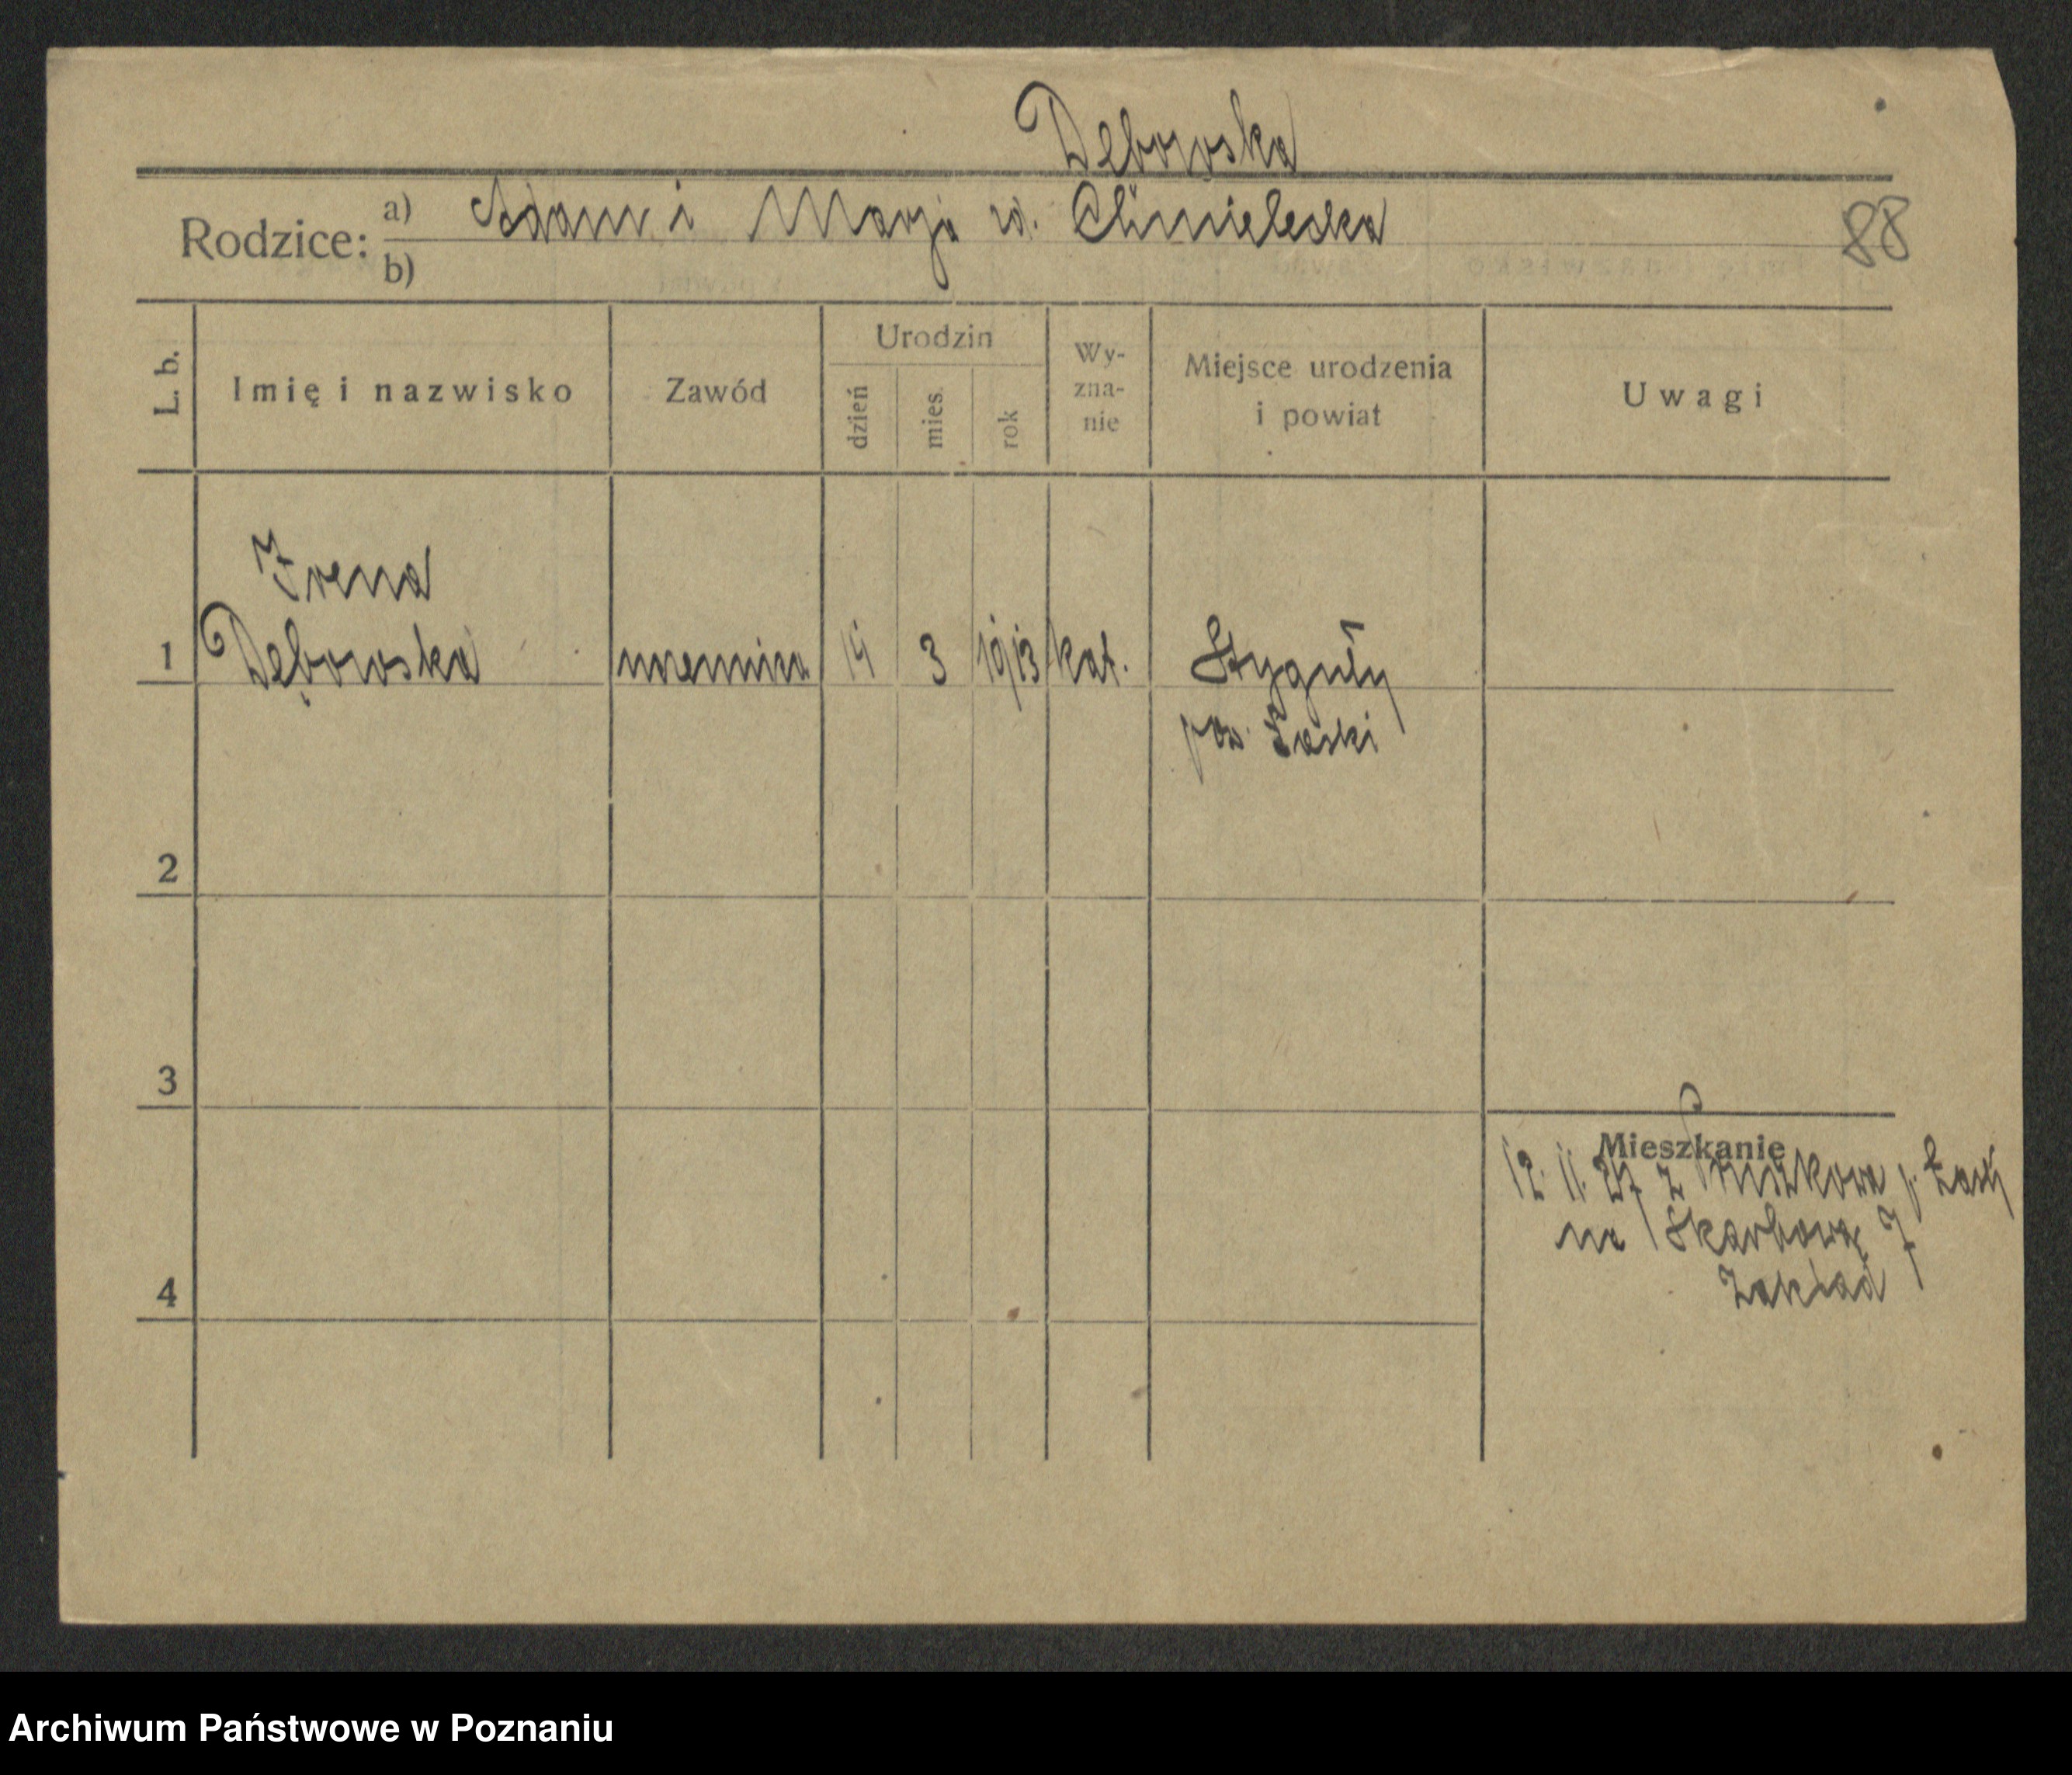 Dębowska
Rodzice: a) Adam i Marja ur. Chmielewska
b)
88
L. b. Imię i nazwisko Zawód Urodzin dzień mies. rok Wy-zna-nie Miejsce urodzenia i powiat Uwagi
Irena
1 Dębowska uczennica 14 3 1913 kat. Styguły
pow. Łaski
2
3
Mieszkanie
12. 11. 27 z Pruszkowa p. Łask
na Skarbową 7
Zakład
4
Archiwum Państwowe w Poznaniu